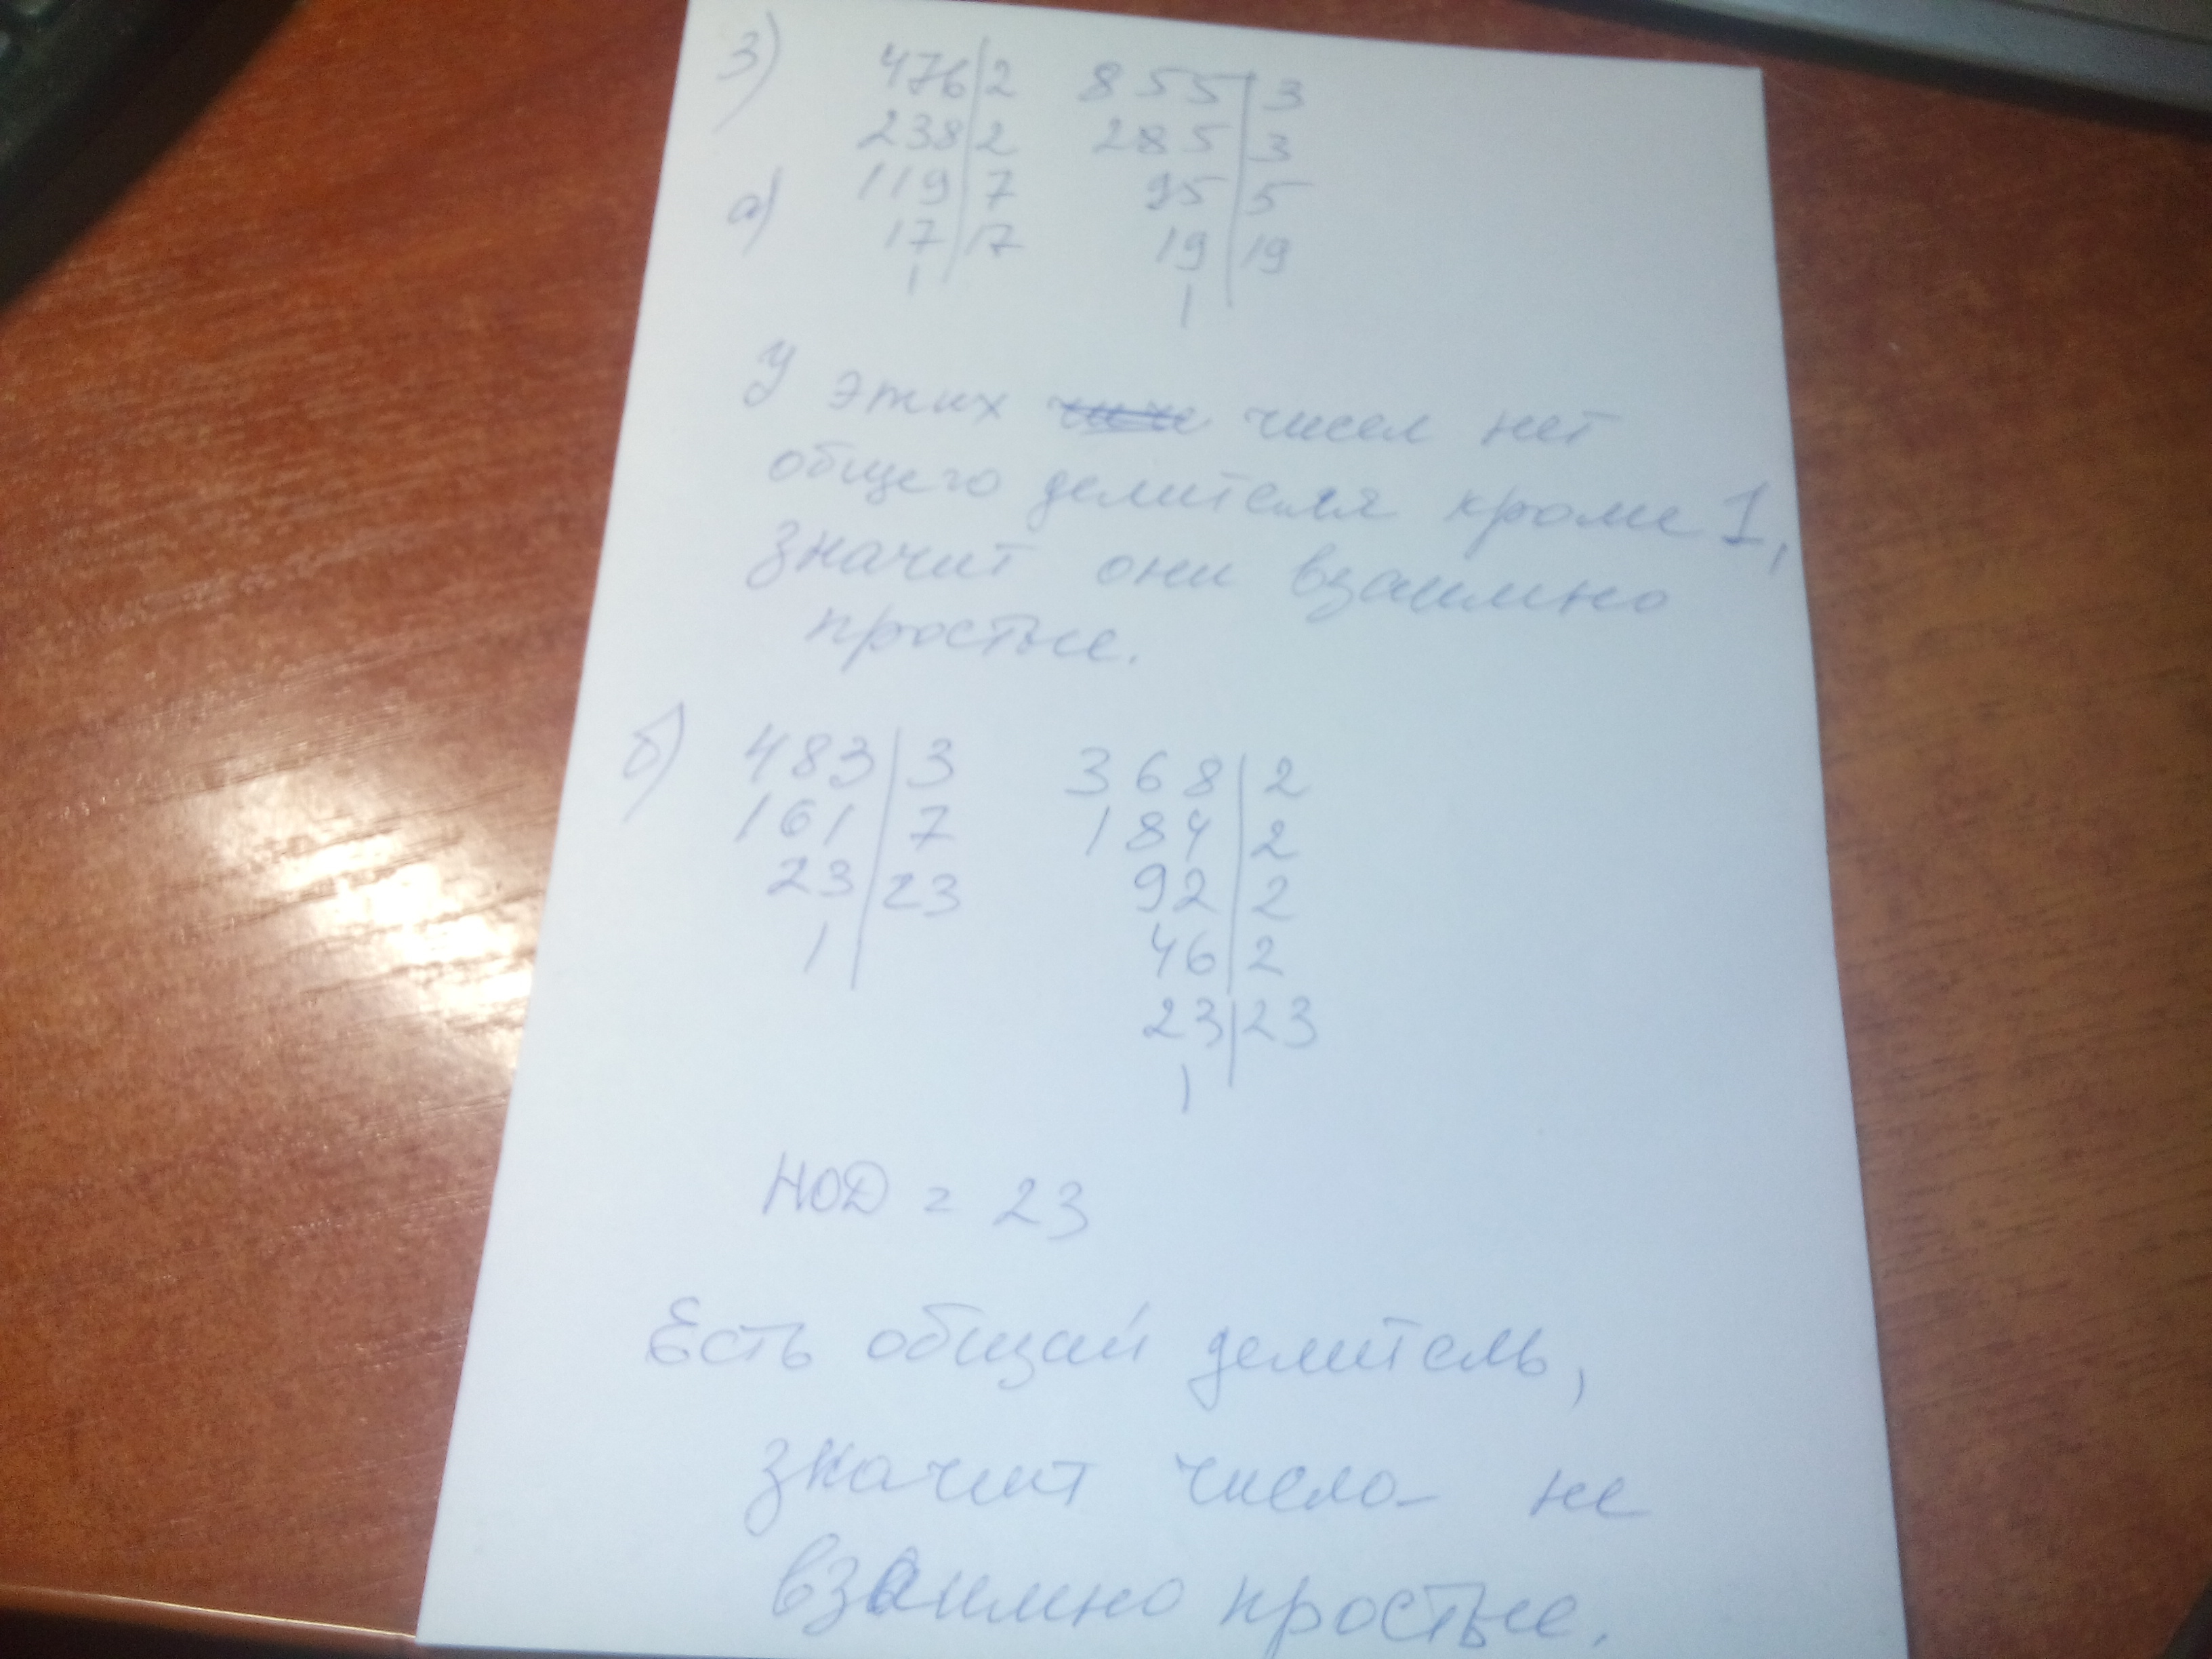 3)
476|2 855|3
238|2 285|3
а) 119|7 95|5
17|17 19|19
1 1
У этих чисел нет
общего делителя кроме 1,
значит они взаимно
простые.
б) 483|3 368|2
161|7 184|2
23|23 92|2
1 46|2
23|23
1
НОД = 23
Есть общий делитель,
значит число - не
взаимно простые.